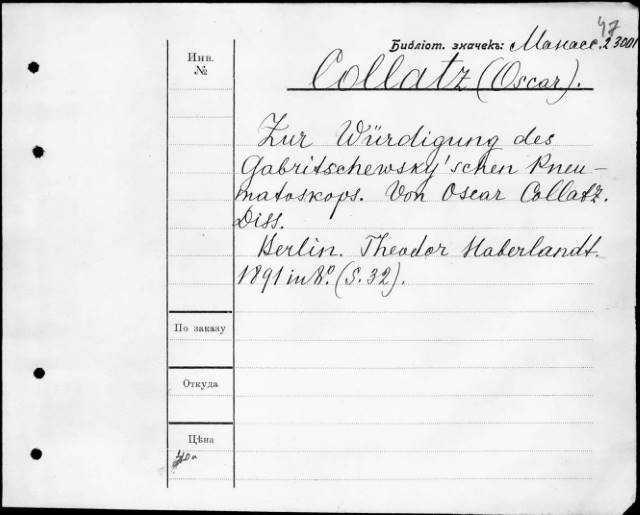 47
Библіот. значекъ: Манасс. 23001
Инв.
№
Collatz (Oscar).
Zur Würdigung des
Gabritschewsky'schen Pneu-
matoskops. Von Oscar Collatz.
Diss.
Berlin. Theodor Haberlandt.
1891 in 8º. (S. 32).
По заказу
Откуда
Цѣна